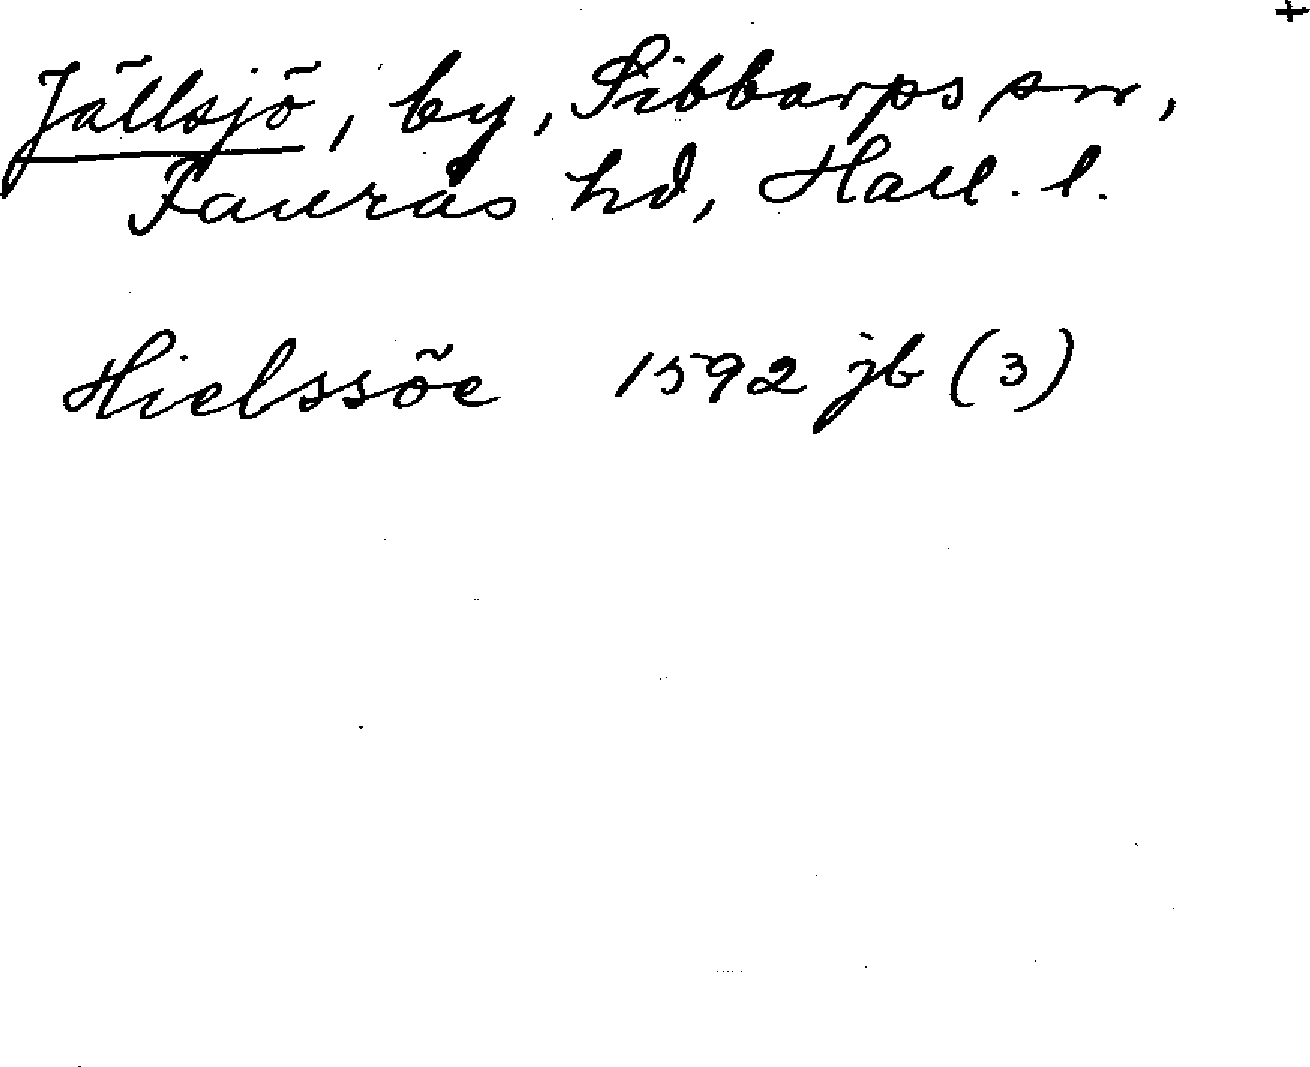 +
Jällsjö, by, Sibbarps sn,
Faurås hd, Hall. l.
Hielssöe 1592 jb (3)